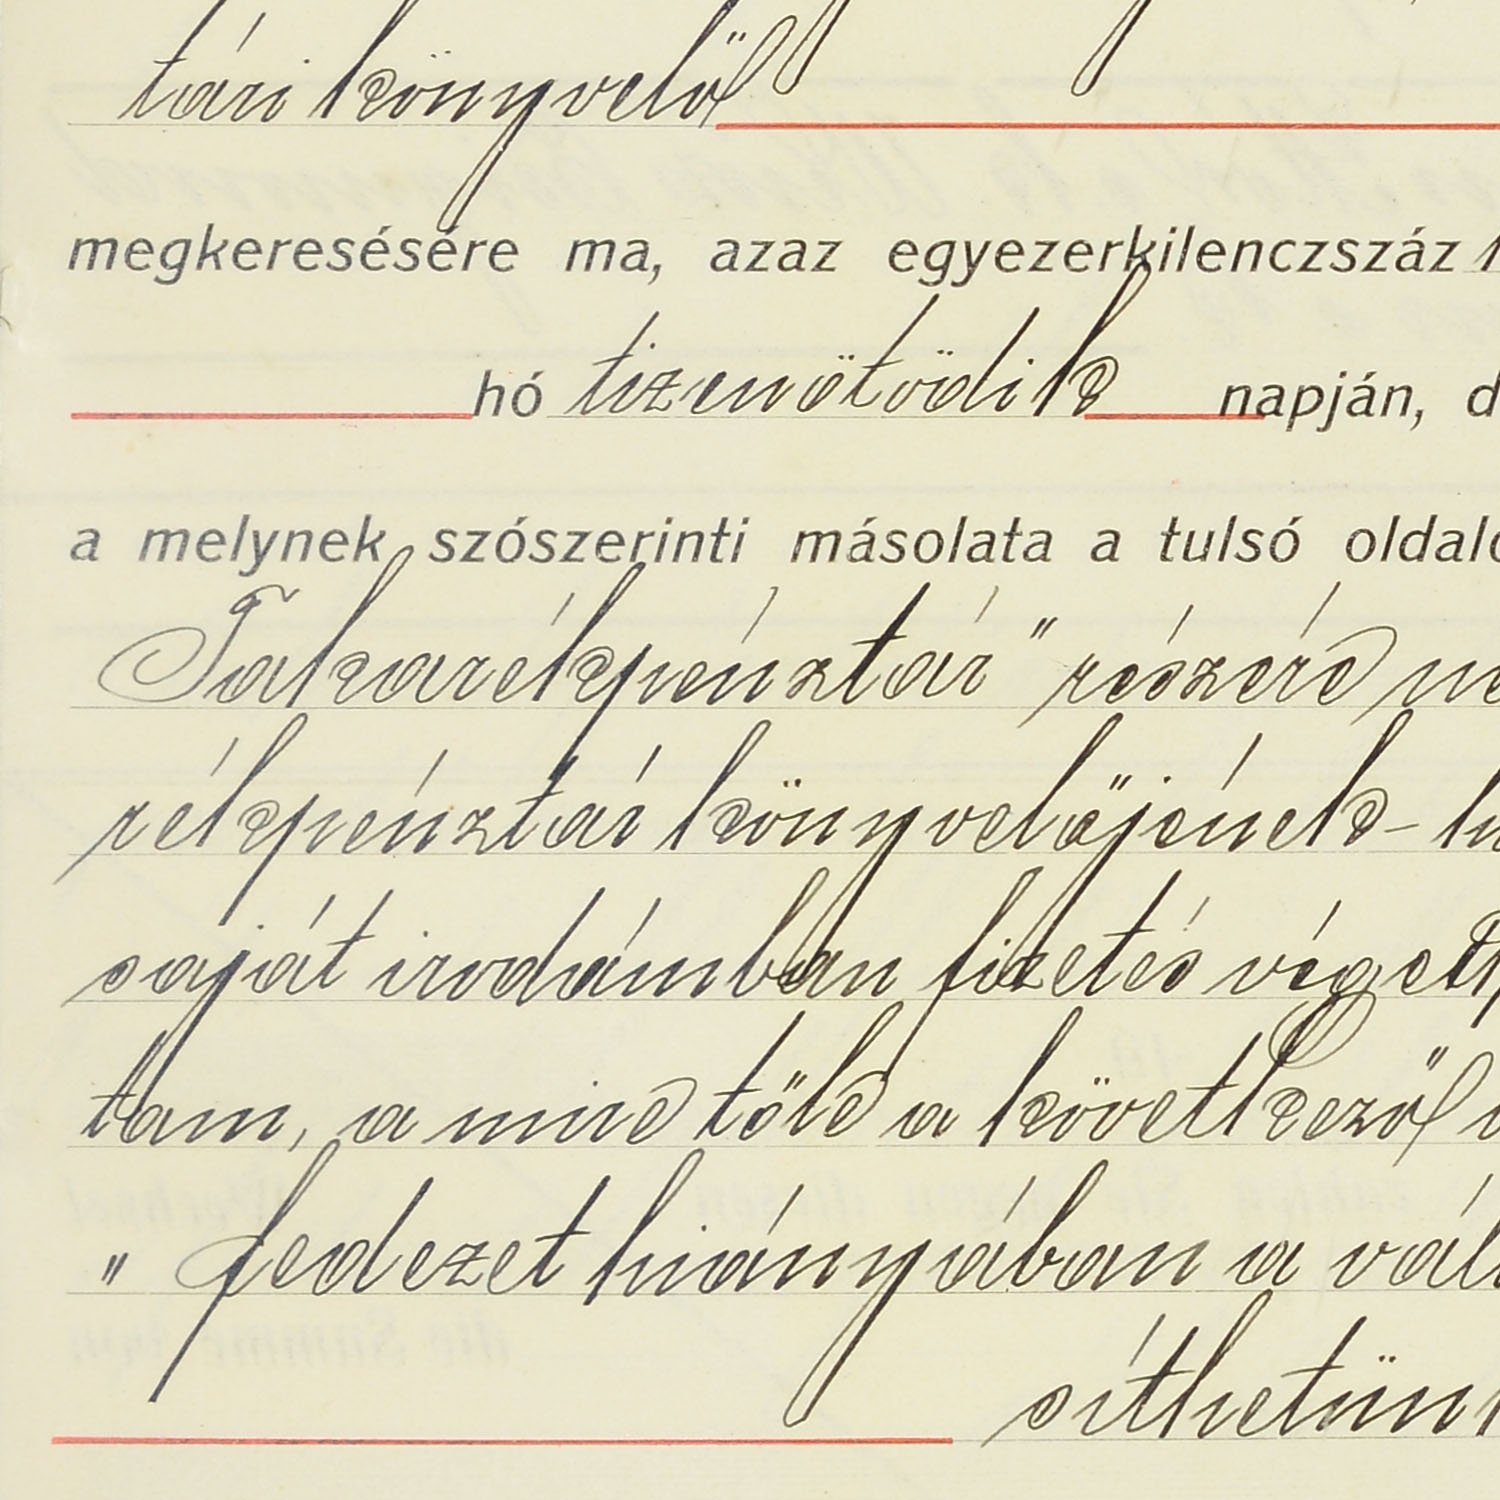 tári könyvelő
megkeresésére ma, azaz egyezerkilenczszáz
hó tizenötödik napján, d
a melynek szószerinti másolata a tulsó oldalo
Takarékpénztár" részére ne
rékpénztár könyvelőjének – lu
saját irodámban fizetés végett
tam, a mire tőle a következő v
" fedezet hiányában a vál
síthetünk